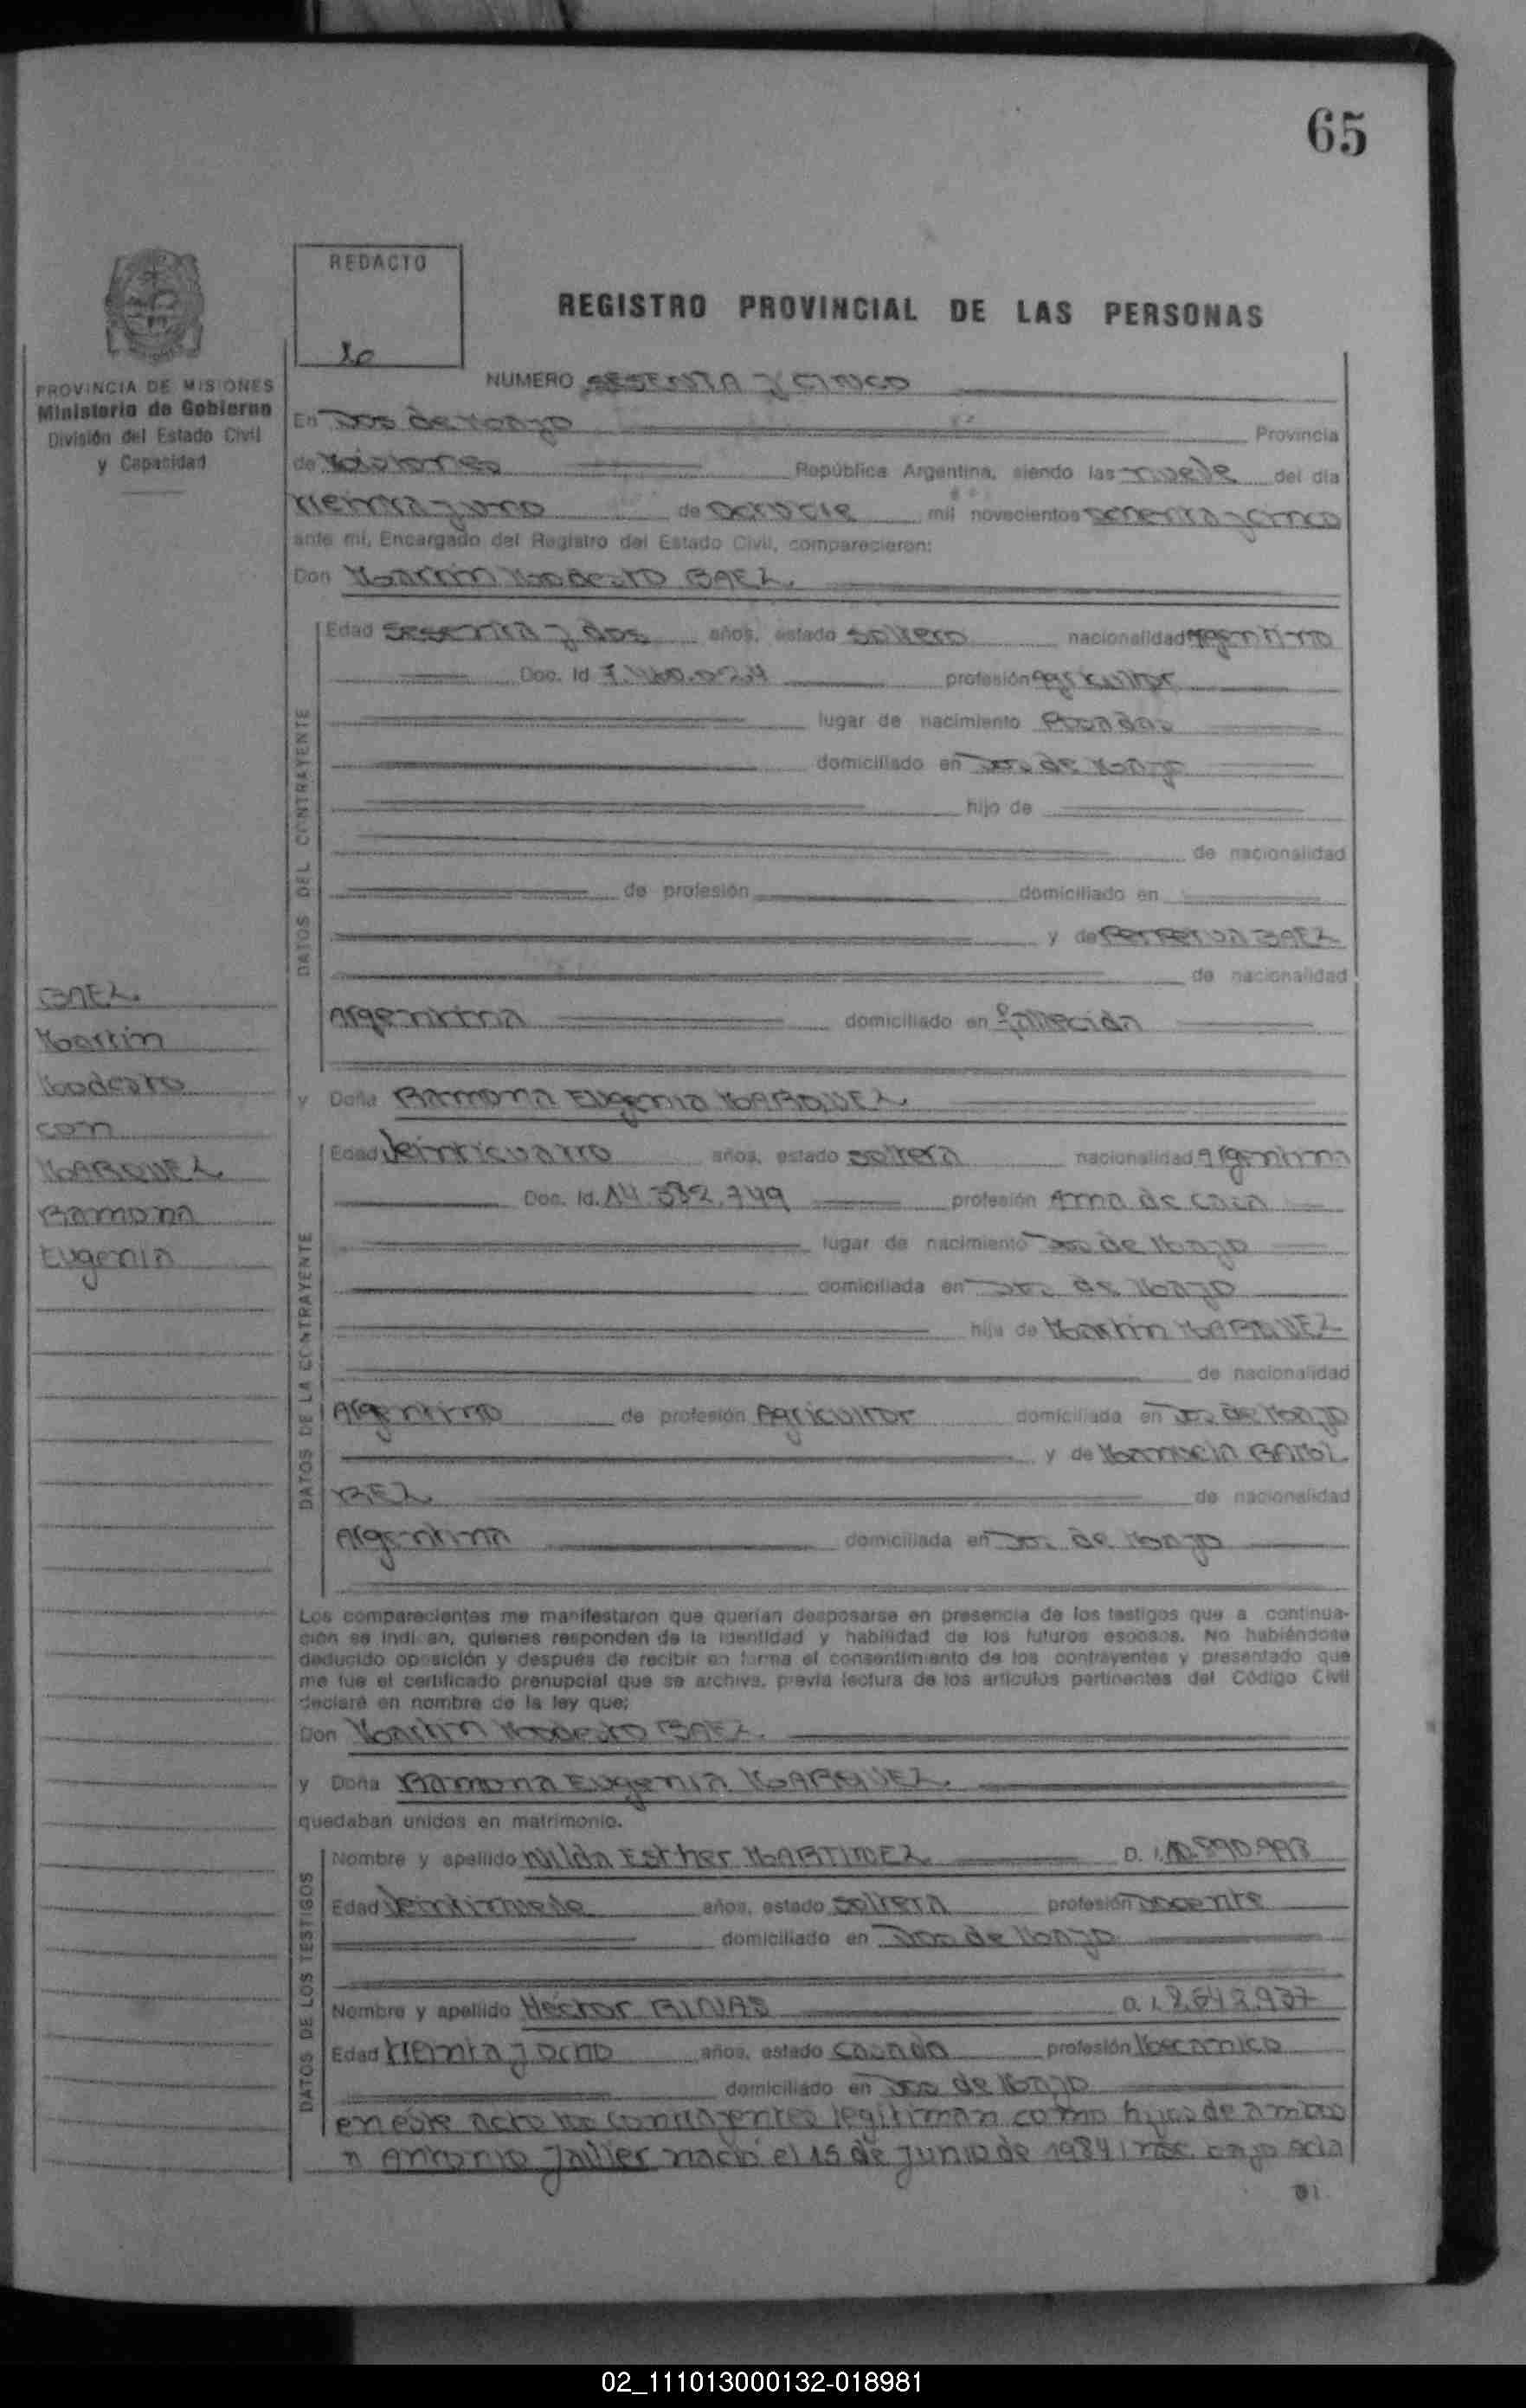 65
REDACTO
REGISTRO PROVINCIAL DE LAS PERSONAS
PROVINCIA DE MISIONES
Ministerio de Gobierno
División del Estado Civil
y Capacidad
NUMERO SESENTA Y CINCO
En Dos de Mayo Provincia
de Misiones República Argentina, siendo las nueve del dia
treinta y uno de octubre mil novecientos ochenta y cinco
ante mí, Encargado del Registro del Estado Civil, comparecieron:
Don Martin Modesto BAEZ.
DATOS DEL CONTRAYENTE
Edad sesenta y dos años, estado soltero nacionalidad argentino
Doc. Id 7.480.024 profesión agricultor
lugar de nacimiento Posadas
domiciliado en Dos de Mayo
hijo de
de nacionalidad
de profesión domiciliado en
y de BAEZ
de nacionalidad
Argentina domiciliado en fallecida
BAEZ.
Martin
Modesto
con
MARQUEZ
Ramona
Eugenia
y Doña Ramona Eugenia MARQUEZ.
DATOS DE LA CONTRAYENTE
Edad Veinticuatro años, estado soltera nacionalidad argentina
Doc. Id. 14.382.749 profesión Ama de casa
lugar de nacimiento Dos de Mayo
domiciliada en Dos de Mayo
hija de Martin MARQUEZ
de nacionalidad
Argentino de profesión Agricultor domiciliada en Dos de Mayo
y de Manuela
de nacionalidad
Argentina domiciliada en Dos de Mayo
Los comparecientes me manifestaron que querían desposarse en presencia de los testigos que a continua-
ción se indican, quienes responden de la identidad y habilidad de los futuros esposos. No habiéndose
deducido oposición y después de recibir en forma el consentimiento de los contrayentes y presentado que
me fue el certificado prenupcial que se archiva, previa lectura de los artículos pertinentes del Código Civil
declaré en nombre de la ley que:
Don Martin Modesto BAEZ.
y Doña Ramona Eugenia MARQUEZ.
quedaban unidos en matrimonio.
DATOS DE LOS TESTIGOS
Nombre y apellido Nilda Esther MARTINEZ D. I. 10.890.998
Edad Veintinueve años, estado soltera profesión Docente
domiciliado en Dos de Mayo
Nombre y apellido Héctor RINAS D. I. 8.642.937
Edad treinta y ocho años, estado casado profesión Mecanico
domiciliado en Dos de Mayo
en este acto los contrayentes legitiman como hijos de ambos
a Antonio Javier nació el 15 de Junio de 1984, bajo acta
02_111013000132-018981